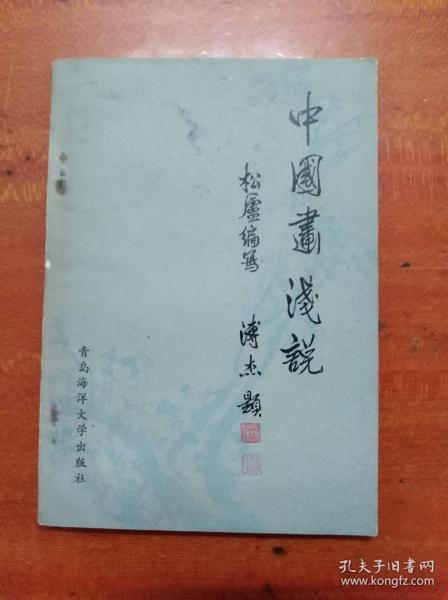 中國畫淺說
松廬編寫
溥杰題
青岛海洋大学出版社
孔夫子旧书网
www.kongfz.com